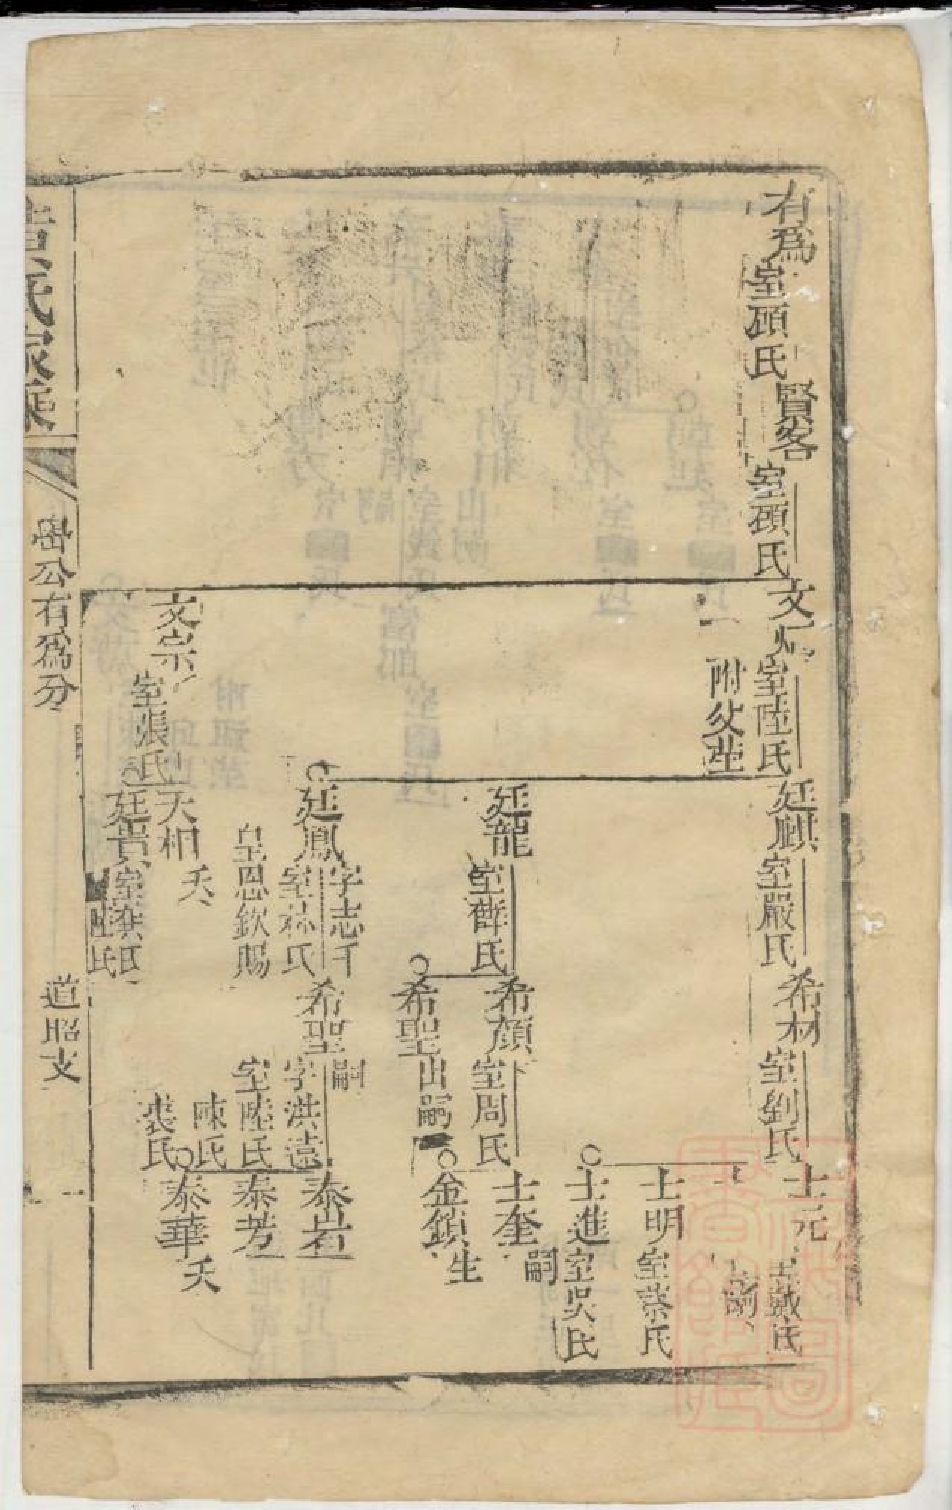 有為
室顧氏
賢客
室顧氏
文
室陸氏
附父塋
文宗
室張氏
廷麒
室嚴氏
廷龍
室薛氏
廷鳳
字志千
室林氏
皇恩欽賜
天相
夭
廷貴
希材
室劉氏
希顏
室周氏
希聖
出嗣
希聖
嗣
字洪遠
室陸氏
陳氏
裘氏
士元
戴氏
嗣
士明
室蔡氏
士進
室吳氏
士奎
嗣
金鎖
生
泰岩
泰芳
泰華
夭
氏家乘
嵒公有為分
道昭支